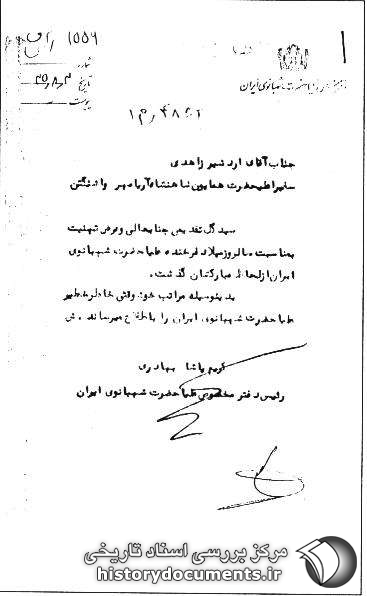 شماره
تاریخ
پیوست
جناب آقای اردشیر زاهدی
سفیر اعلیحضرت همایون شاهنشاه آریامهر واشنگتن
سبد گل تقدیمی جنابعالی و عرض تهنیت
بمناسبت سالروز میلاد فرخنده علیاحضرت شهبانوی
ایران از لحاظ مبارکشان گذشت.
بدینوسیله مراتب خوشوقتی خاطر خطیر
علیاحضرت شهبانوی ایران را باطلاع میرساند.
کریم پاشا بهادری
رئیس دفتر مخصوص علیاحضرت شهبانوی ایران
مرکز بررسی اسناد تاریخی
historydocuments.ir